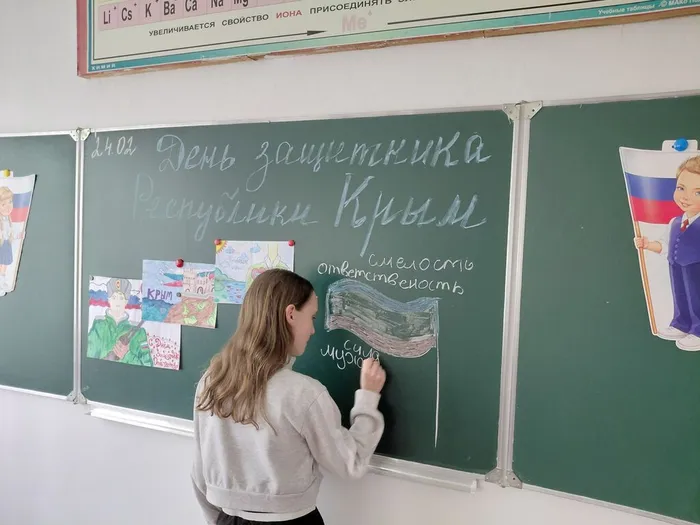 Li⁺ Cs⁺ K⁺ Ba⁺ Ca⁺ Na⁺ Mg⁺
УВЕЛИЧИВАЕТСЯ СВОЙСТВО ИОНА ПРИСОЕДИНЯТЬ
Me⁺
ХИМИЯ
Учебные таблицы
24.02
День защитника
Республики Крым
смелость
ответственость
КРЫМ
сила
муж